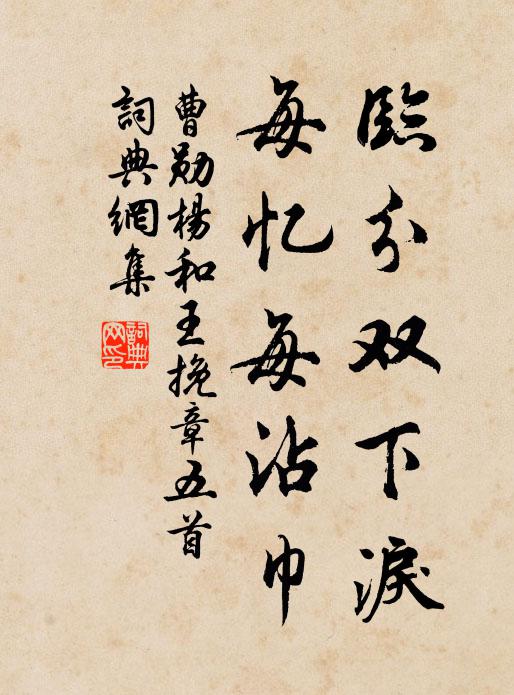 臨分双下淚
每忆每沾巾
曹勛楊和王挽章五首
詞典網集
詞典网印